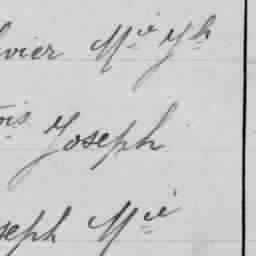 vier Mie Jh
ois Joseph
seph Mie